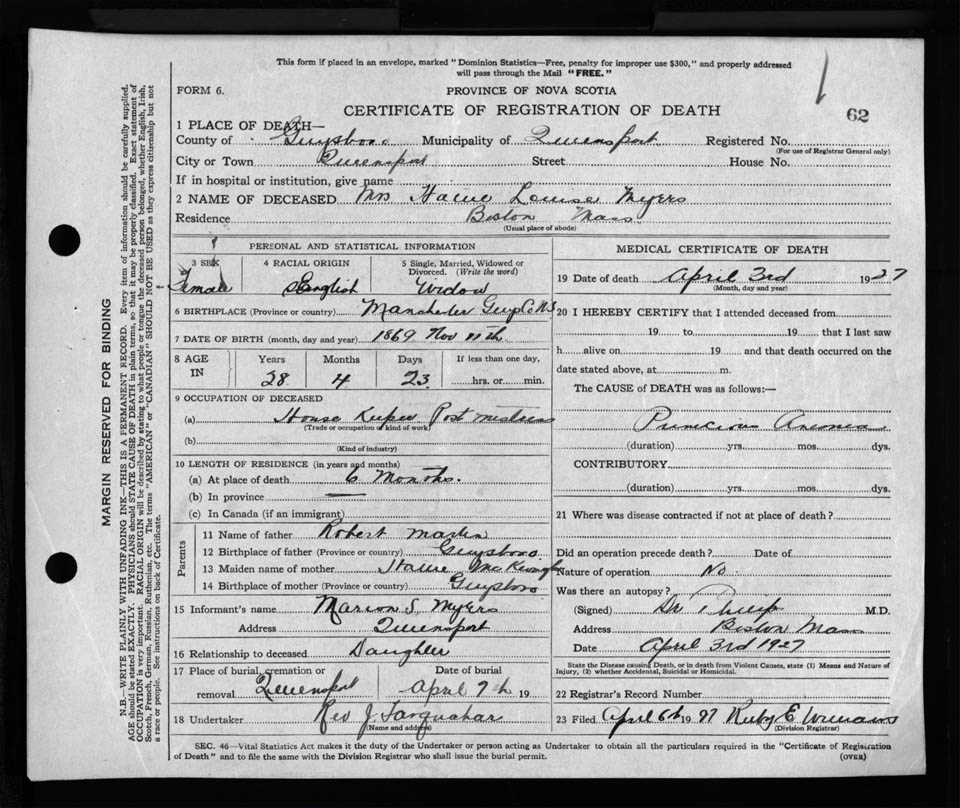 This form if placed in an envelope, marked "Dominion Statistics—Free, penalty for improper use $300," and properly addressed
will pass through the Mail "FREE."
FORM 6.
PROVINCE OF NOVA SCOTIA
CERTIFICATE OF REGISTRATION OF DEATH
62
1 PLACE OF DEATH—
County of Guysboro Municipality of Queensport Registered No.
(For use of Registrar General only)
City or Town Queensport Street House No.
If in hospital or institution, give name
2 NAME OF DECEASED Mrs Louise Myers
Residence Boston Mass
(Usual place of abode)
PERSONAL AND STATISTICAL INFORMATION
3 SEX
Female
4 RACIAL ORIGIN
English
5 Single, Married, Widowed or Divorced. (Write the word)
Widow
6 BIRTHPLACE (Province or country) Manchester Guys Co N.S
7 DATE OF BIRTH (month, day and year) 1869 Nov 11th
8 AGE IN
Years Months Days If less than one day,
28 4 23 hrs. or min.
9 OCCUPATION OF DECEASED
(a) House Keeper Post mistress
(Trade or occupation or kind of work)
(b)
(Kind of industry)
10 LENGTH OF RESIDENCE (in years and months)
(a) At place of death 6 Months.
(b) In province —
(c) In Canada (if an immigrant)
Parents
11 Name of father Robert Martin
12 Birthplace of father (Province or country) Guysboro
13 Maiden name of mother
14 Birthplace of mother (Province or country) Guysboro
15 Informant's name Marion S. Myers
Address Queensport
16 Relationship to deceased Daughter
17 Place of burial, cremation or removal Queensport
Date of burial
April 7th 19
18 Undertaker Rev J. Farquahar
(Name and address)
MEDICAL CERTIFICATE OF DEATH
19 Date of death April 3rd 1927
(Month, day and year)
20 I HEREBY CERTIFY that I attended deceased from
19 to 19 that I last saw
h alive on 19 and that death occurred on the
date stated above, at m.
The CAUSE of DEATH was as follows:—
Pernicious Anemia
(duration) yrs. mos. dys.
CONTRIBUTORY
(duration) yrs. mos. dys.
21 Where was disease contracted if not at place of death?
Did an operation precede death? Date of
Nature of operation No
Was there an autopsy?
(Signed) Dr Philip M.D.
Address Boston Mass
Date April 3rd 1927
State the Disease causing Death, or in death from Violent Causes, state (1) Means and Nature of
Injury, (2) whether Accidental, Suicidal or Homicidal.
22 Registrar's Record Number
23 Filed April 6th 1927 Ruby E Williams
(Division Registrar)
SEC. 46—Vital Statistics Act makes it the duty of the Undertaker or person acting as Undertaker to obtain all the particulars required in the "Certificate of Registration
of Death" and to file the same with the Division Registrar who shall issue the burial permit.
(OVER)
MARGIN RESERVED FOR BINDING
N.B.—WRITE PLAINLY WITH UNFADING INK—THIS IS A PERMANENT RECORD. Every item of information should be carefully supplied.
AGE should be stated EXACTLY. PHYSICIANS should STATE CAUSE OF DEATH in plain terms, so that it may be properly classified. Exact statement of
OCCUPATION is very important. RACIAL ORIGIN will be described by stating to what people or tongue the deceased person belonged, whether English, Irish,
Scotch, French, German, Russian, Ruthenian, etc. The terms "AMERICAN" or "CANADIAN" SHOULD NOT BE USED as they express citizenship but not
a race or people. See instructions on back of Certificate.